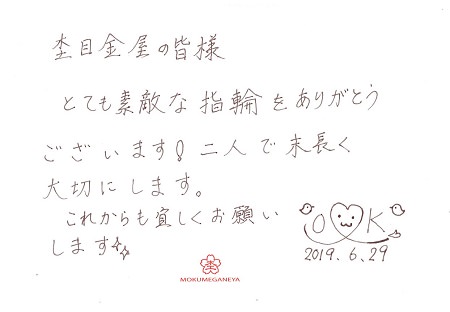 杢目金屋の皆様
とても素敵な指輪をありがとう
ございます! 二人で末長く
大切にします。
これからも宜しくお願い
します
O K
2019.6.29
杢
MOKUMEGANEYA